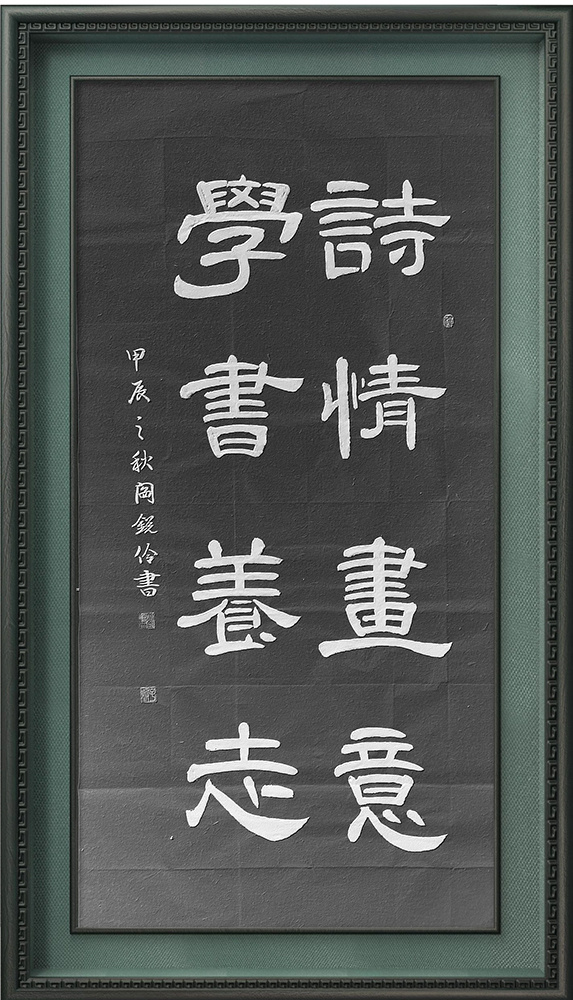 詩情畫意
學書養志
甲辰之秋閻銳伶書